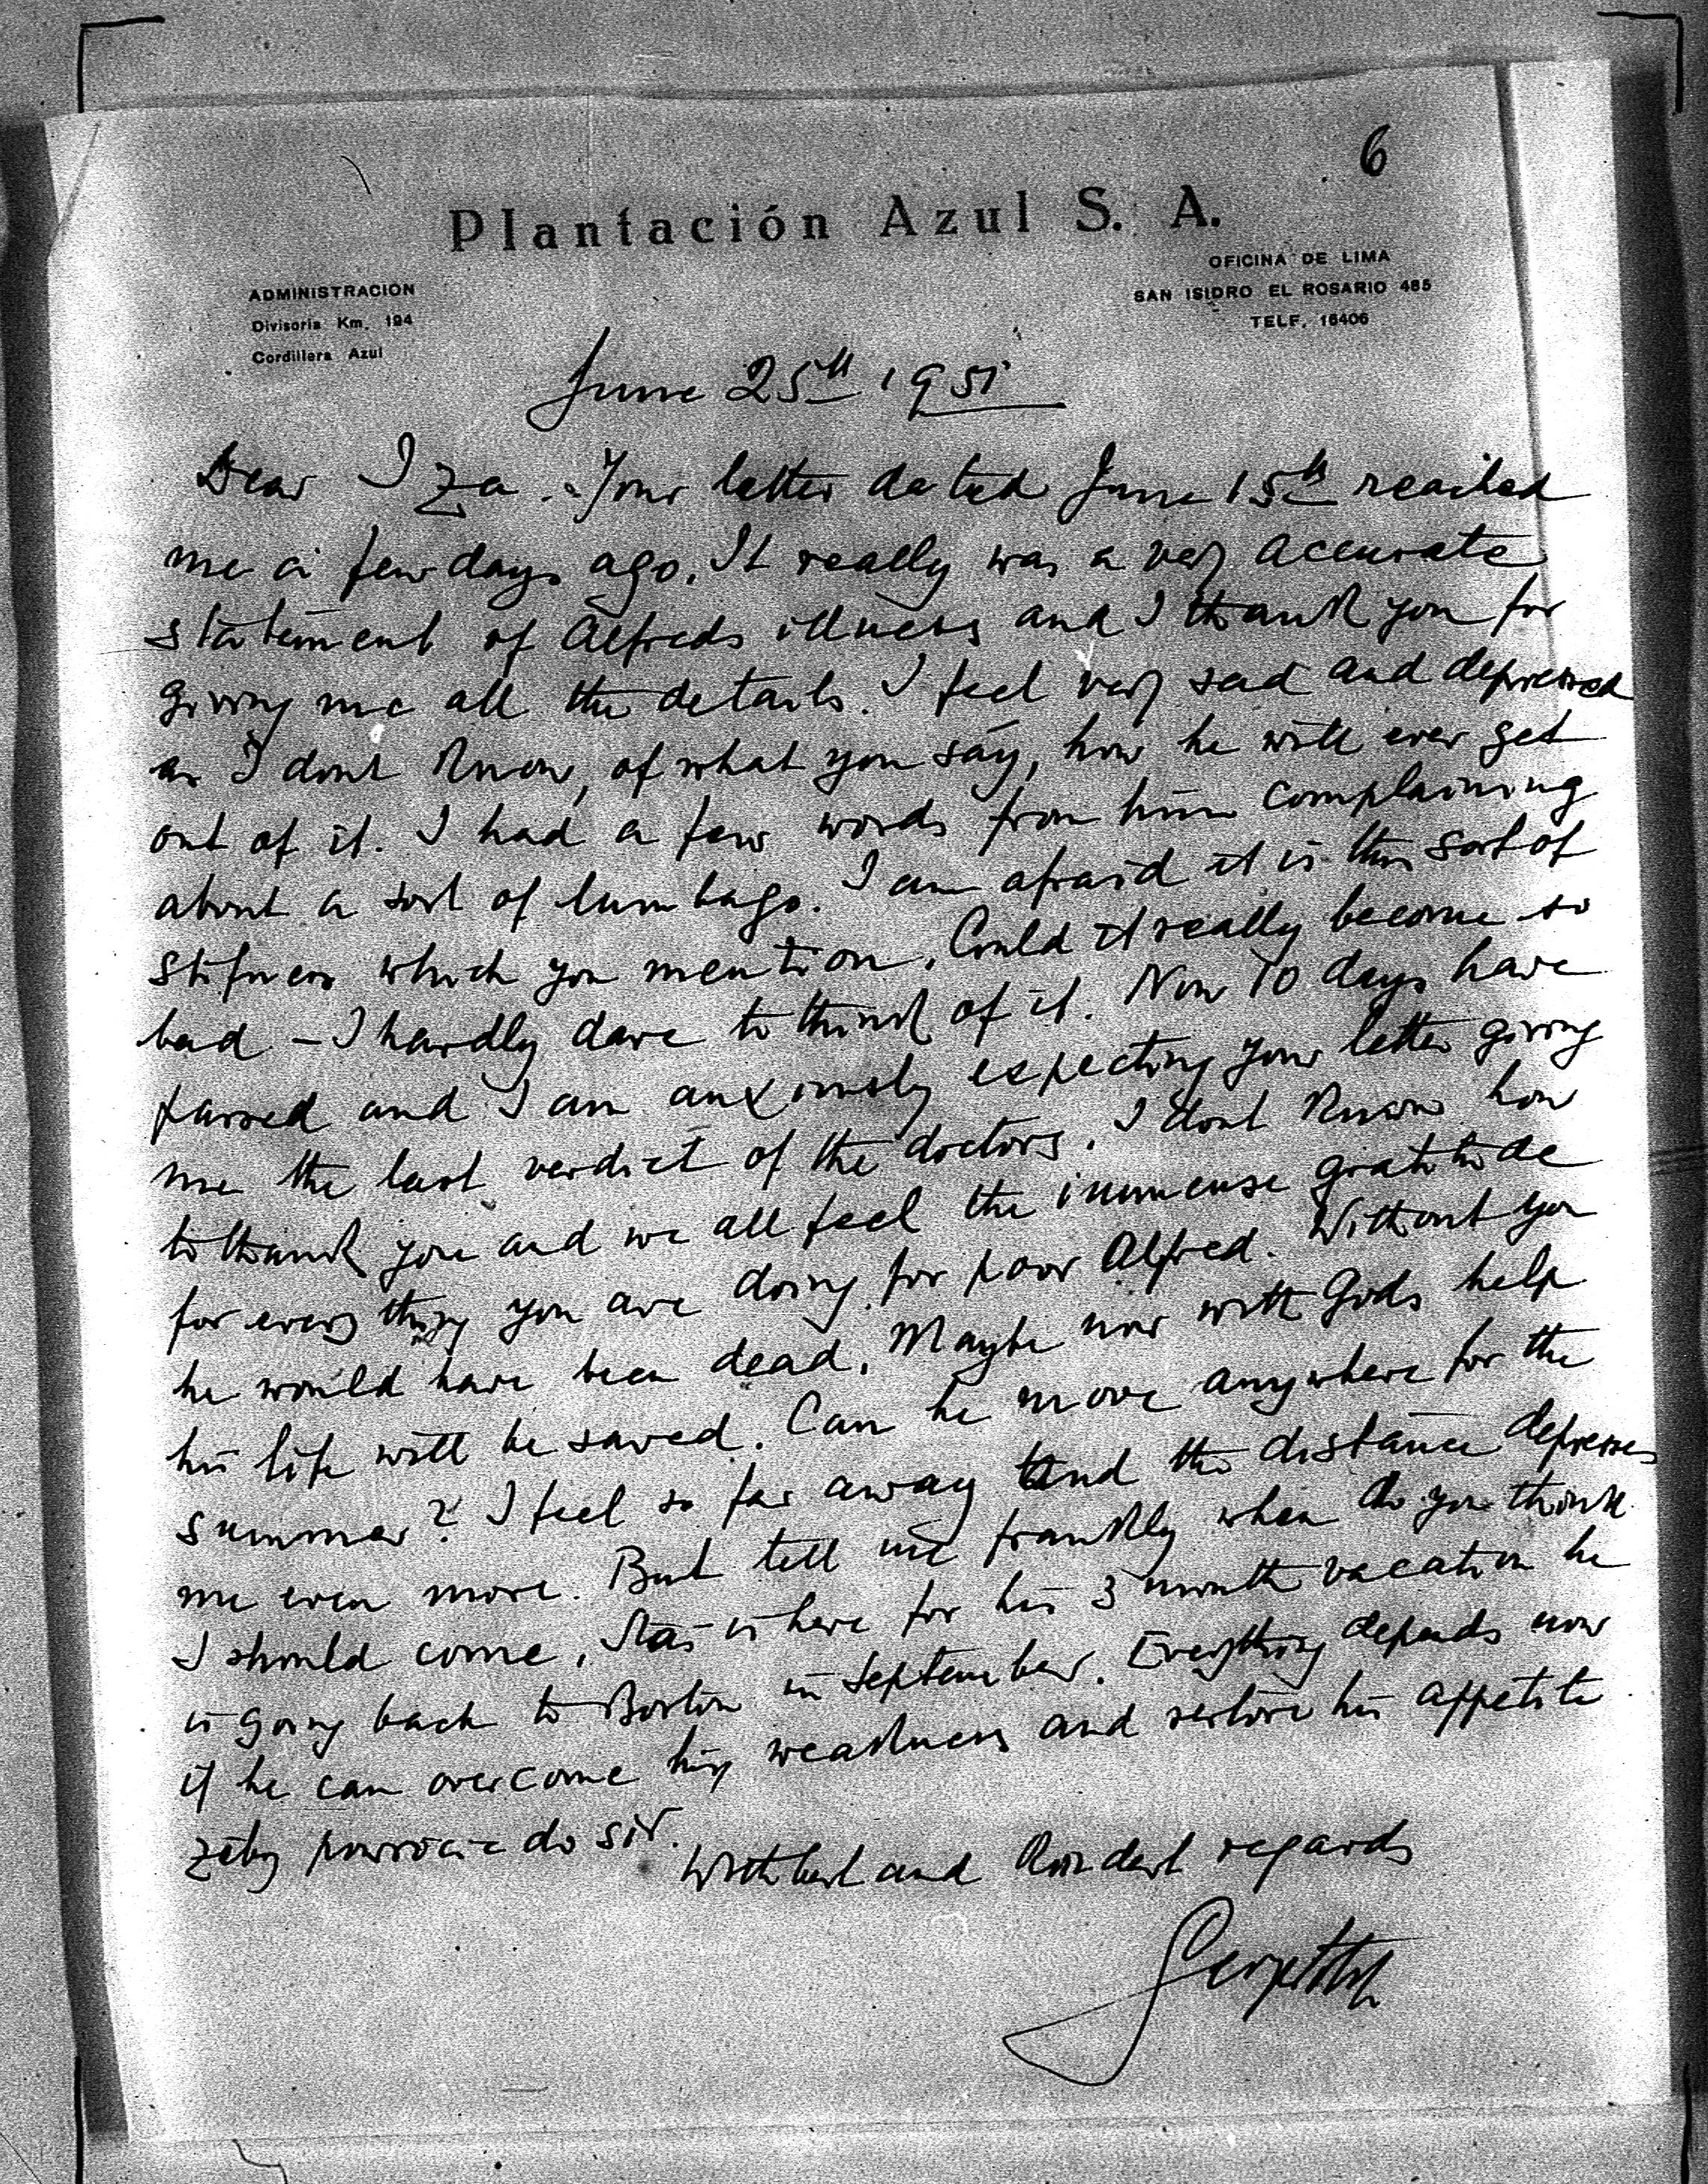 6
Plantación Azul S. A.
ADMINISTRACION
Divisoria Km. 194
Cordillera Azul
OFICINA DE LIMA
SAN ISIDRO EL ROSARIO 465
TELF. 15406
June 25th 1951
Dear Iza. Your letter dated June 15th reached
me a few days ago. It really was a very accurate
statement of Alfreds illness and I thank you for
giving me all the details. I feel very sad and depressed
as I dont know, of what you say, how he will ever get
out of it. I had a few words from him complaining
about a sort of lumbago. I am afraid it is this sort of
stifness which you mention. Could it really become so
bad - I hardly dare to think of it. Now 10 days have
passed and I am anxiously expecting your letter giving
me the last verdict of the doctors. I dont know how
to thank you and we all feel the immense gratitude
for every thing you are doing for poor Alfred. Without you
he would have been dead. Maybe now with Gods help
his life will be saved. Can he move anywhere for the
summer? I feel so far away and the distance depresses
me even more. But tell me frankly when do you think
I should come. Stas is here for his 3 month vacation he
is going back to Boston in September. Everything depends now
if he can overcome his weakness and restore his appetite
żeby powrócić do sił.
With best and kindest regards